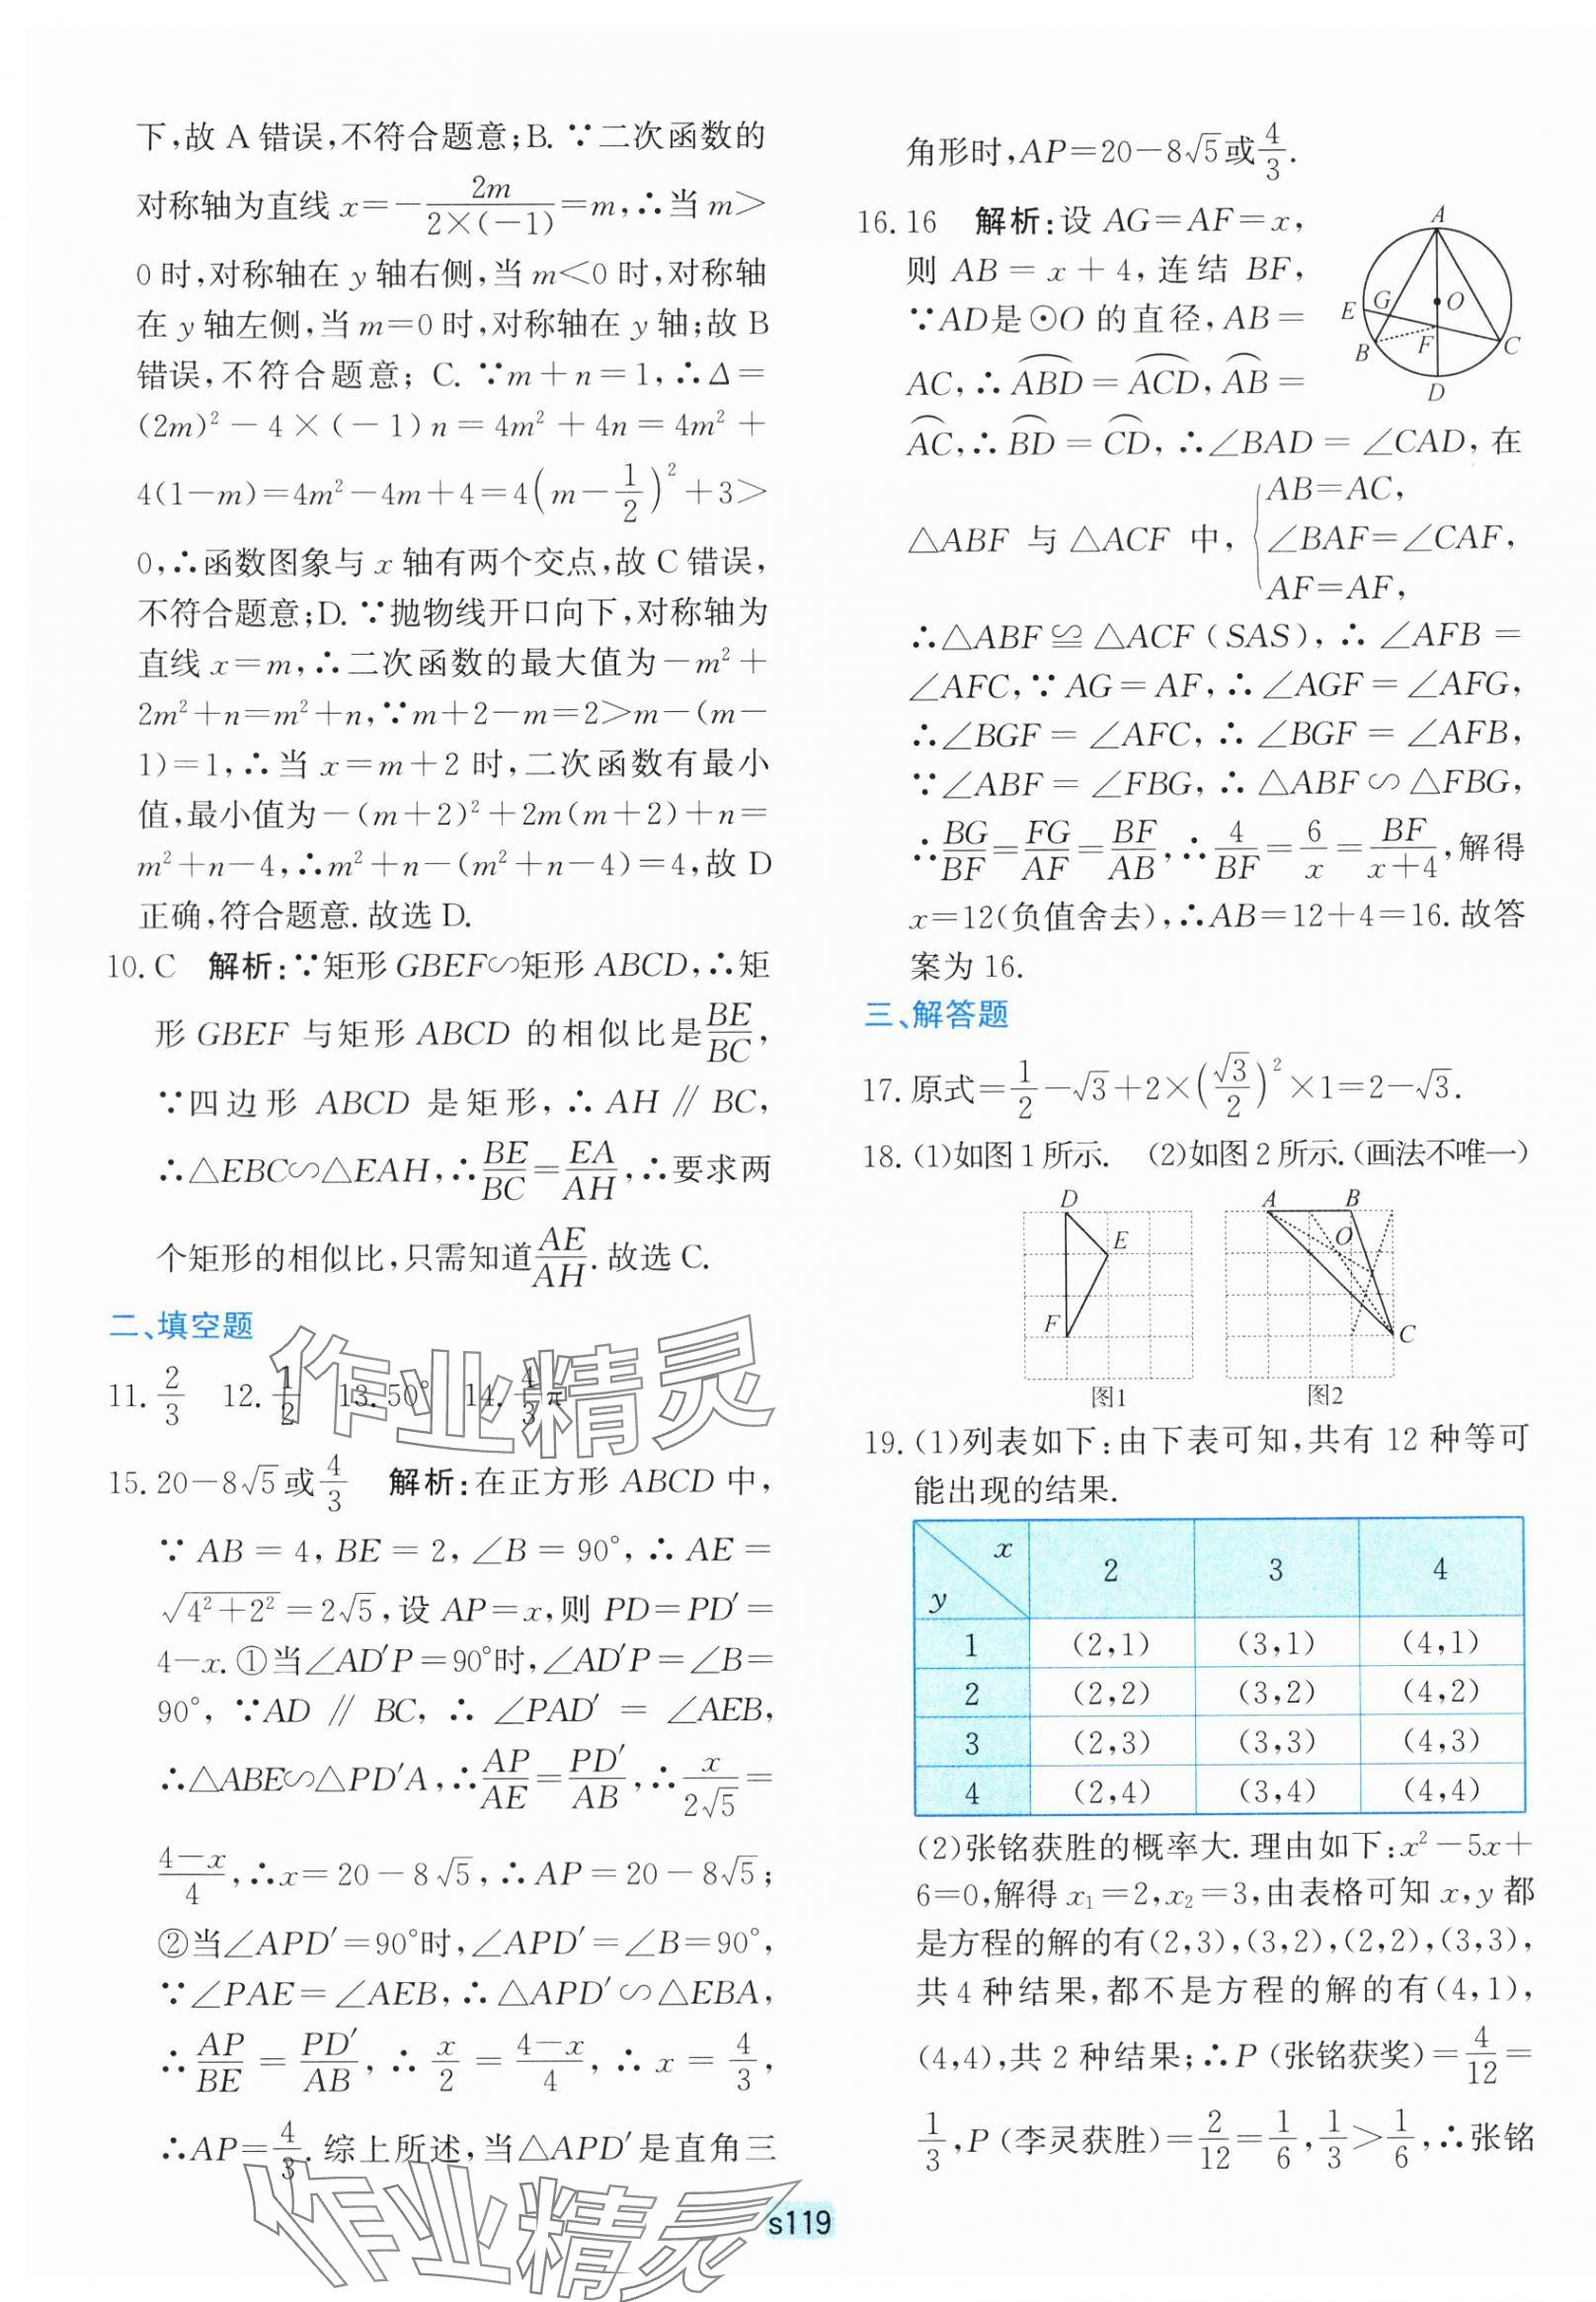 下,故 A 错误,不符合题意;B. ∵二次函数的
对称轴为直线 x=-2m/(2×(-1))=m,∴当 m>
0 时,对称轴在 y 轴右侧,当 m<0 时,对称轴
在 y 轴左侧,当 m=0 时,对称轴在 y 轴;故 B
错误,不符合题意; C. ∵m+n=1,∴Δ=
(2m)²-4×(-1)n=4m²+4n=4m²+
4(1-m)=4m²-4m+4=4(m-1/2)²+3>
0,∴函数图象与 x 轴有两个交点,故 C 错误,
不符合题意;D. ∵抛物线开口向下,对称轴为
直线 x=m,∴二次函数的最大值为-m²+
2m²+n=m²+n,∵m+2-m=2>m-(m-
1)=1,∴当 x=m+2 时,二次函数有最小
值,最小值为-(m+2)²+2m(m+2)+n=
m²+n-4,∴m²+n-(m²+n-4)=4,故 D
正确,符合题意.故选 D.
10. C 解析:∵矩形 GBEF∽矩形 ABCD,∴矩
形 GBEF 与矩形 ABCD 的相似比是BE/BC,
∵四边形 ABCD 是矩形,∴AH∥BC,
∴△EBC∽△EAH,∴BE/BC=EA/AH,∴要求两
个矩形的相似比,只需知道AE/AH.故选 C.
二、填空题
11. 2/3 12. 1/2 13. 50° 14. 4/3π
15. 20-8√5或4/3 解析:在正方形 ABCD 中,
∵AB=4,BE=2,∠B=90°,∴AE=
√(4²+2²)=2√5,设 AP=x,则 PD=PD′=
4-x.①当∠AD′P=90°时,∠AD′P=∠B=
90°,∵AD∥BC,∴∠PAD′=∠AEB,
∴△ABE∽△PD′A,∴AP/AE=PD′/AB,∴x/(2√5)=
(4-x)/4,∴x=20-8√5,∴AP=20-8√5;
②当∠APD′=90°时,∠APD′=∠B=90°,
∵∠PAE=∠AEB,∴△APD′∽△EBA,
∴AP/BE=PD′/AB,∴x/2=(4-x)/4,∴x=4/3,
∴AP=4/3.综上所述,当△APD′是直角三
角形时,AP=20-8√5或4/3.
16. 16 解析:设 AG=AF=x,
则 AB=x+4,连结 BF,
∵AD是⊙O 的直径,AB=
AC,∴⌒ABD=⌒ACD,⌒AB=
⌒AC,∴⌒BD=⌒CD,∴∠BAD=∠CAD,在
△ABF 与△ACF 中,
AB=AC,
∠BAF=∠CAF,
AF=AF,
∴△ABF≌△ACF(SAS),∴∠AFB=
∠AFC,∵AG=AF,∴∠AGF=∠AFG,
∴∠BGF=∠AFC,∴∠BGF=∠AFB,
∵∠ABF=∠FBG,∴△ABF∽△FBG,
∴BG/BF=FG/AF=BF/AB,∴4/BF=6/x=BF/(x+4),解得
x=12(负值舍去),∴AB=12+4=16.故答
案为 16.
A
E G O
B F C
D
三、解答题
17. 原式=1/2-√3+2×(√3/2)²×1=2-√3.
18. (1)如图 1 所示. (2)如图 2 所示.(画法不唯一)
D
E
F
图1
A B
O
C
图2
19. (1)列表如下:由下表可知,共有 12 种等可
能出现的结果.
x
y 2 3 4
1 (2,1) (3,1) (4,1)
2 (2,2) (3,2) (4,2)
3 (2,3) (3,3) (4,3)
4 (2,4) (3,4) (4,4)
(2)张铭获胜的概率大.理由如下:x²-5x+
6=0,解得 x₁=2,x₂=3,由表格可知 x,y 都
是方程的解的有(2,3),(3,2),(2,2),(3,3),
共 4 种结果,都不是方程的解的有(4,1),
(4,4),共 2 种结果;∴P(张铭获奖)=4/12=
1/3,P(李灵获胜)=2/12=1/6,1/3>1/6,∴张铭
s119
作业精灵
作业精灵